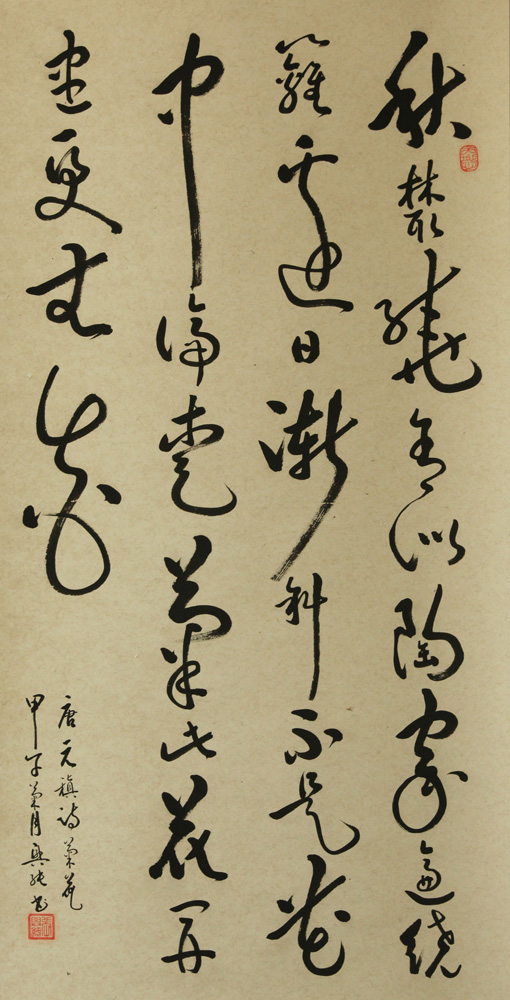 秋叢繞舍似陶家遍繞
籬邊日漸斜不是花
中偏愛菊此花開
盡更無花
唐元稹詩菊花
甲子菊月興書